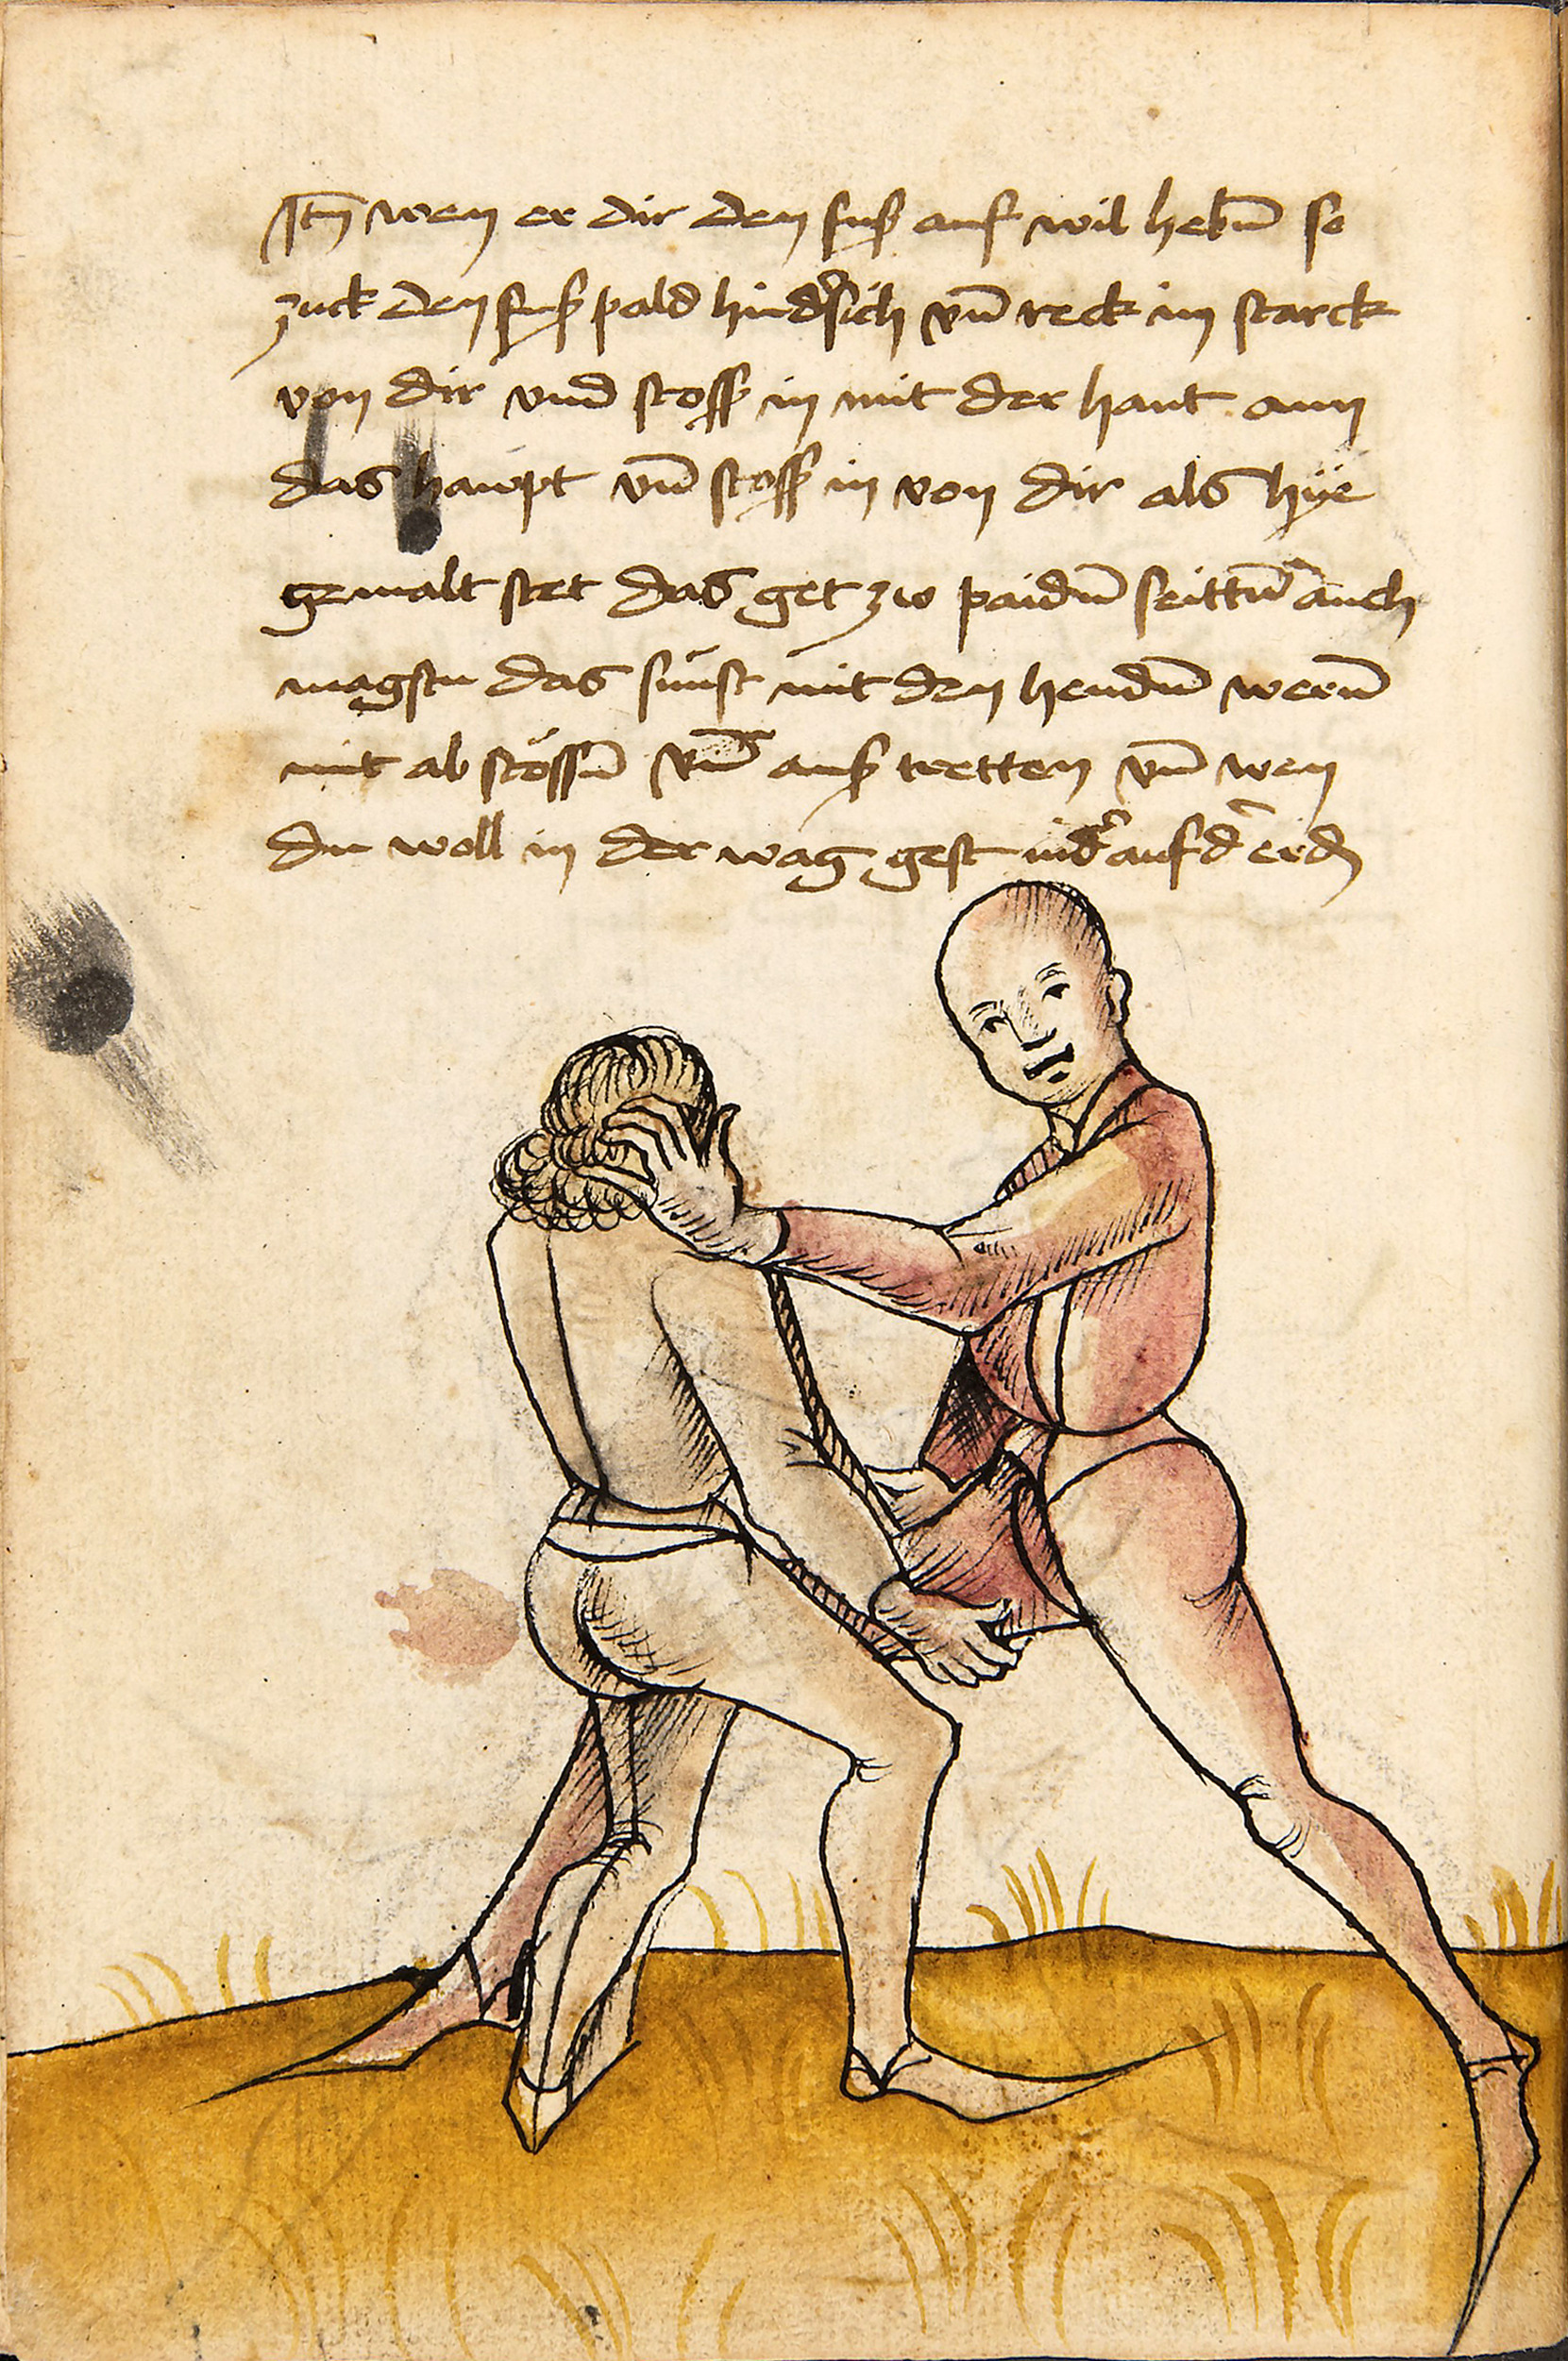 Itm wen er dir den fuß auf wil hebñ so
zuck den fuß pald hindsich vñ reck in starck
von dir vnd stoss in mit der hant ann
das hawpt vñ stoss in von dir als hÿe
gemalt stet das get zw paidñ seittñ auch
magstu das sünst mit den hendñ wernn
mit ab stössñ vñ auß tretten vñ wen
du woll in der wag gest nidr auf d erd